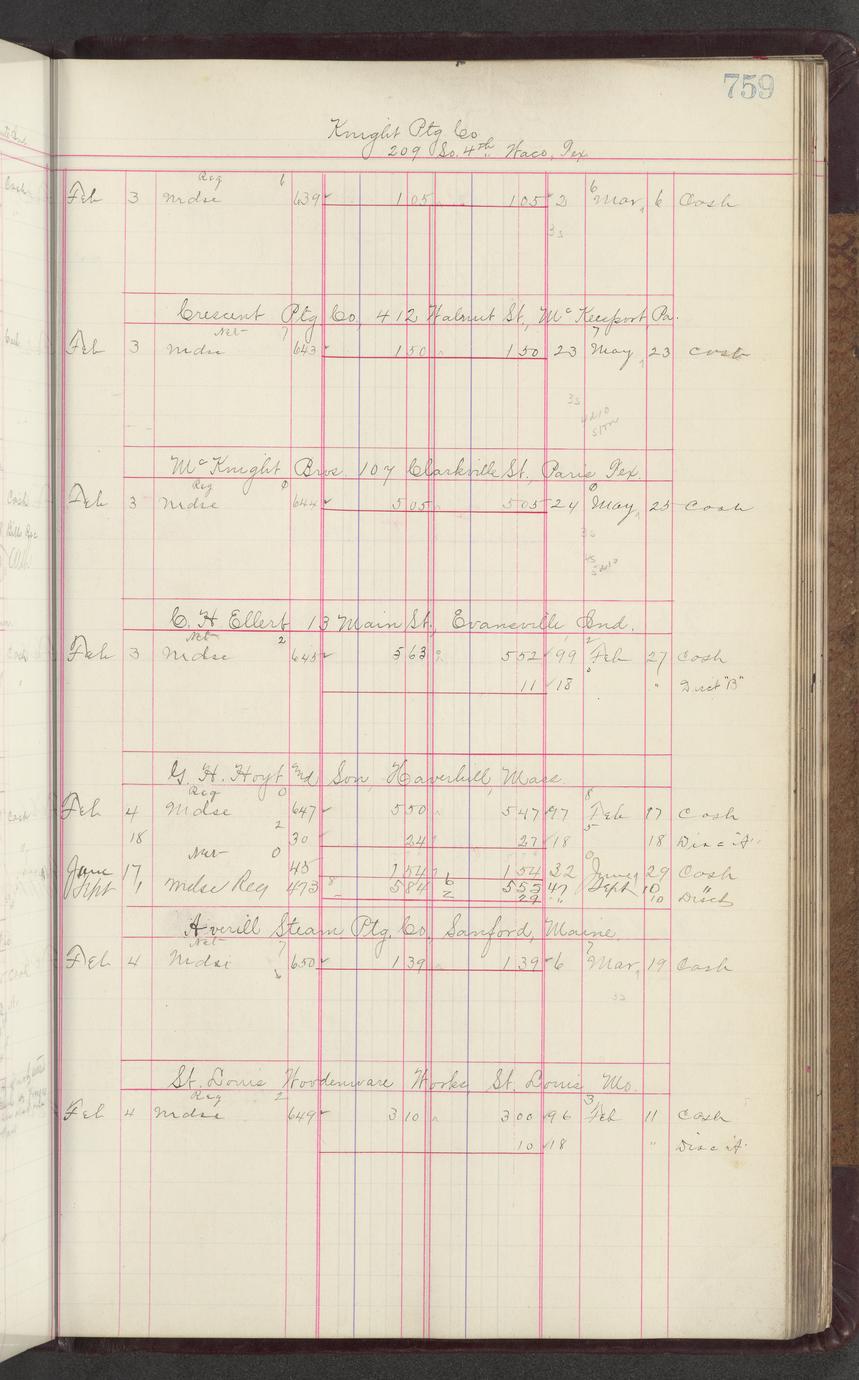 759
Knight Ptg Co
209 So. 4th Waco, Tex
Reg 6 6
Feb 3 Mdse 639 1 05 1 05 2 Mar 6 Cash
3s
Crescent Ptg Co, 412 Walnut St, McKeesport, Pa.
Net 7 7
Feb 3 Mdse 643 1 50 1 50 23 May 23 Cash
3s
McKnight Bros. 107 Clarksville St, Paris Tex.
Reg 0 0
Feb 3 Mdse 644 5 05 5 05 24 May 25 Cash
3s
C. H Ellert 13 Main St, Evansville Ind.
Net 2 2
Feb 3 Mdse 645 5 63 5 52 99 Feb 27 Cash
11 18 " Disct "B"
G. H. Hoyt and Son, Haverhill, Mass
Reg 0 8
Feb 4 Mdse 647 5 50 5 47 97 Feb 17 Cash
2 5
18 30 24 27 18 18 Disc "A"
Net 0 0
June 17 45 1 54 1 54 32 June 29 Cash
Sept 1 Mdse Reg 473 8 5 84 6 5 55 47 Sept 10 "
2 29 " 10 Disct
Averill Steam Ptg. Co, Sanford, Maine.
Net 7 7
Feb 4 Mdse 650 1 39 1 39 6 Mar 19 Cash
3s
St. Louis Woodenware Works St. Louis Mo.
Reg 2 3
Feb 4 Mdse 649 3 10 3 00 96 Feb 11 Cash
10 18 " Disc "A"